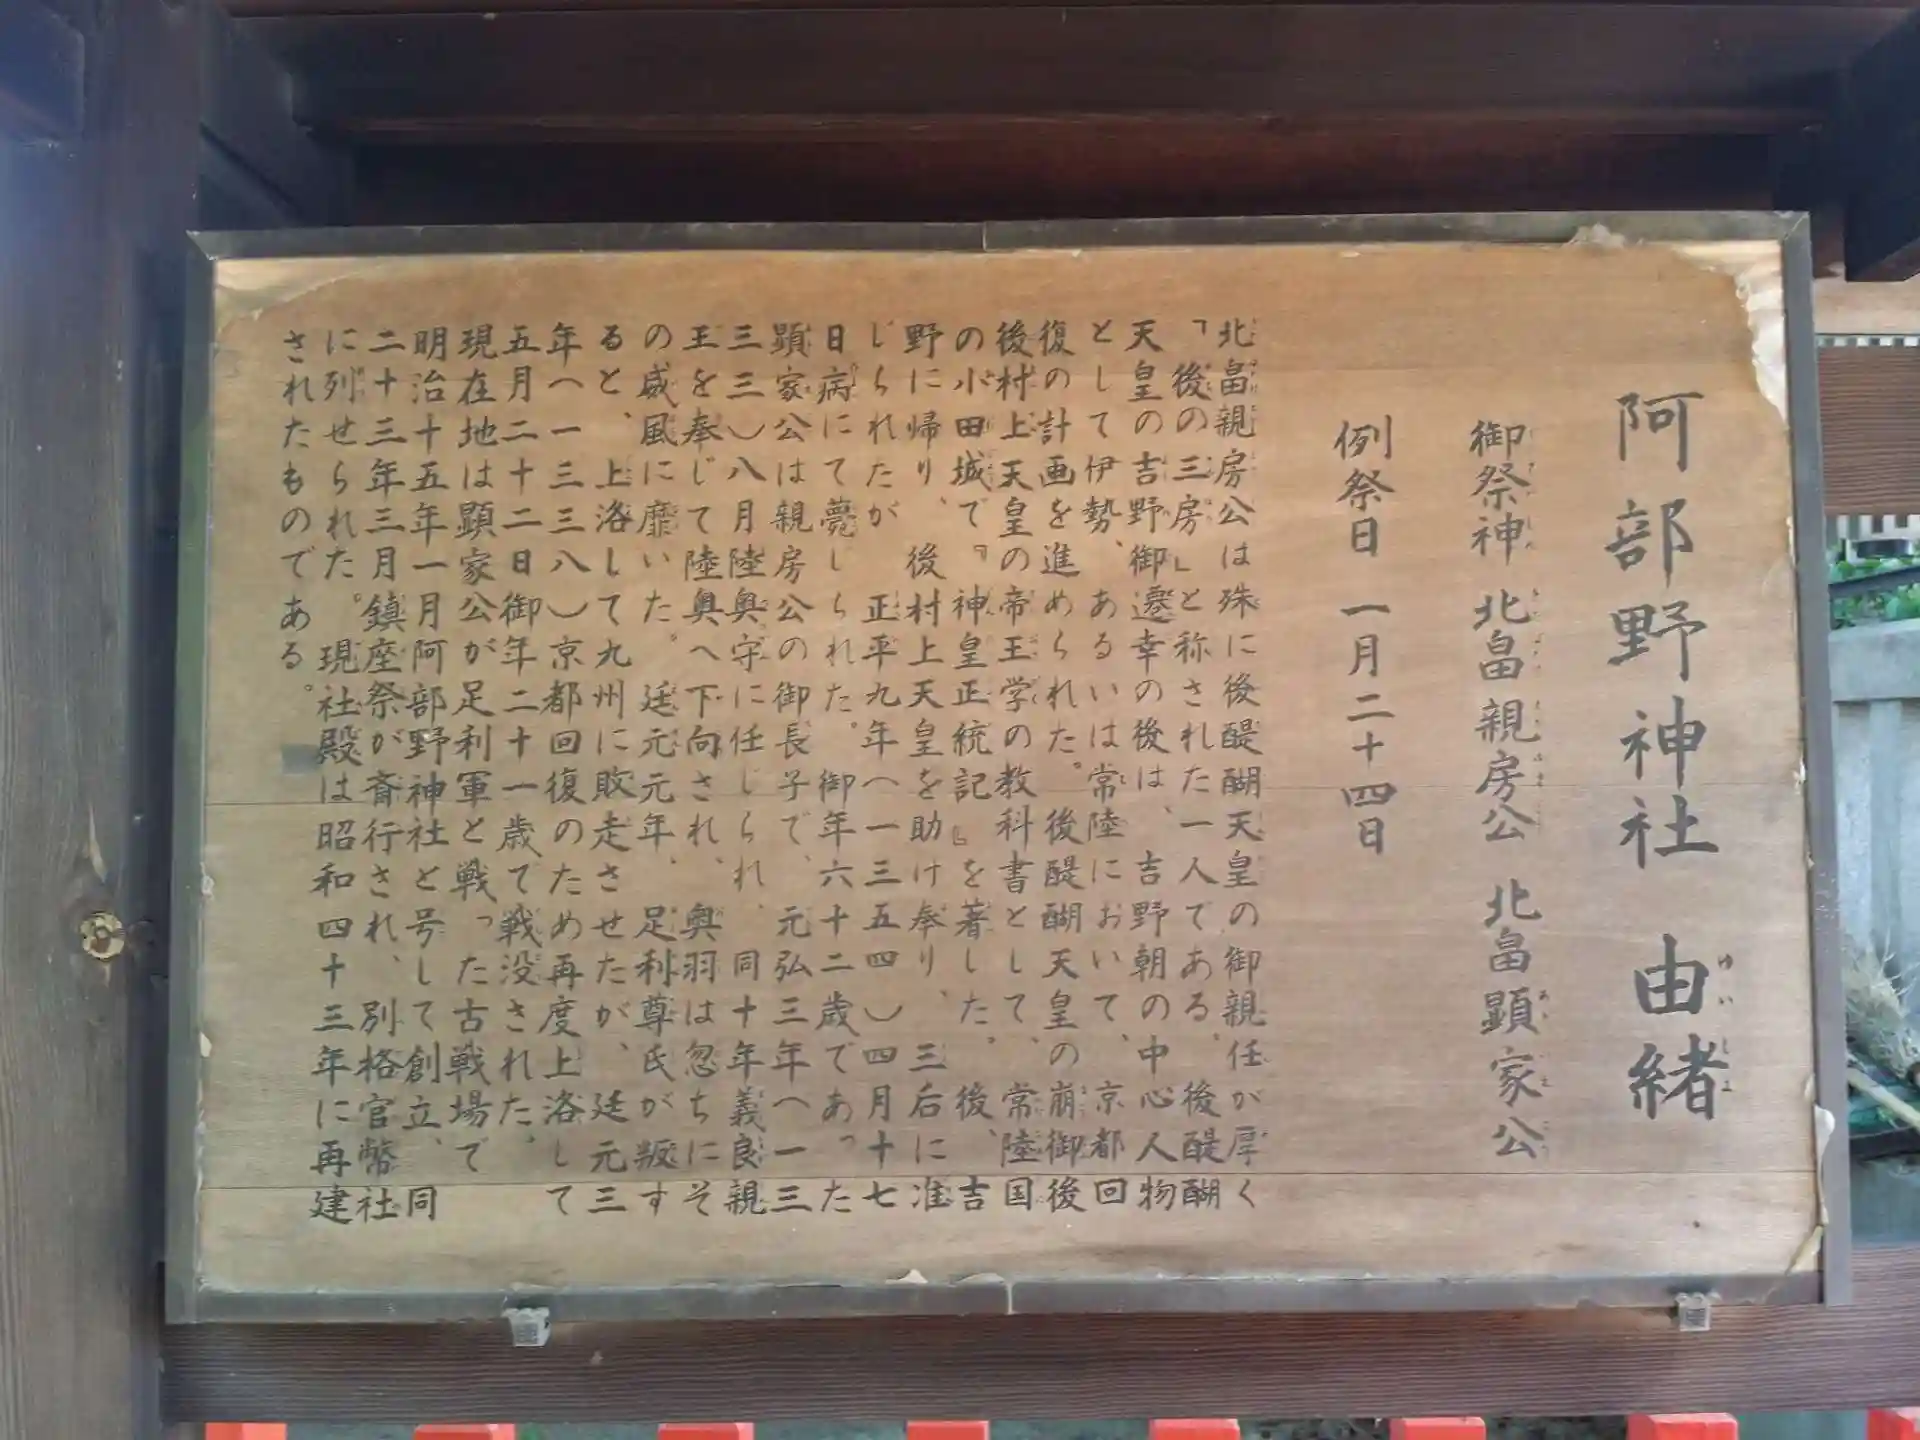 阿部野神社 由緒
御祭神 北畠親房公 北畠顕家公
例祭日 一月二十四日
北畠親房公は殊に後醍醐天皇の御親任が厚く
「後の三房」と称された一人である、後醍醐
天皇の吉野御遷幸の後は、吉野朝の中心人物
として伊勢、あるいは常陸において、京都回
復の計画を進められた。後醍醐天皇の崩御後
後村上天皇の帝王学の教科書として、常陸国
の小田城で『神皇正統記』を著した。後、吉
野に帰り、後村上天皇を助け奉り、三后に准
じられたが 正平九年(一三五四)四月十七
日病にて薨じられた。御年六十二歳であった
顕家公は親房公の御長子で、元弘三年(一三
三三)八月陸奥守に任じられ、同十年義良親
王を奉じて陸奥へ下向され、奥羽は忽ちにそ
の威風に靡いた。延元元年、足利尊氏が叛す
ると、上洛して九州に敗走させたが、延元三
年(一三三八)京都回復のため再度上洛して
五月二十二日御年二十一歳で戦没された。
現在地は顕家公が足利軍と戦った古戦場で
明治十五年一月阿部野神社と号して創立、同
二十三年三月鎮座祭が斎行され、別格官幣社
に列せられた。現社殿は昭和四十三年に再建
されたものである。